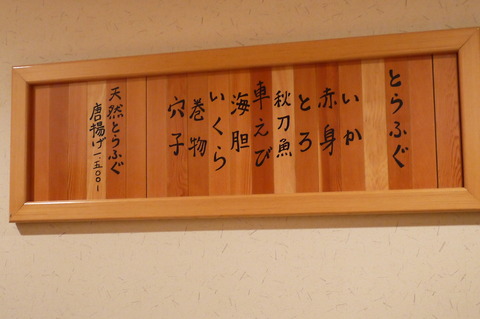 とらふぐ
いか
赤身
とろ
秋刀魚
車えび
海胆
いくら
巻物
穴子
天然とらふぐ
唐揚げ一、五〇〇-